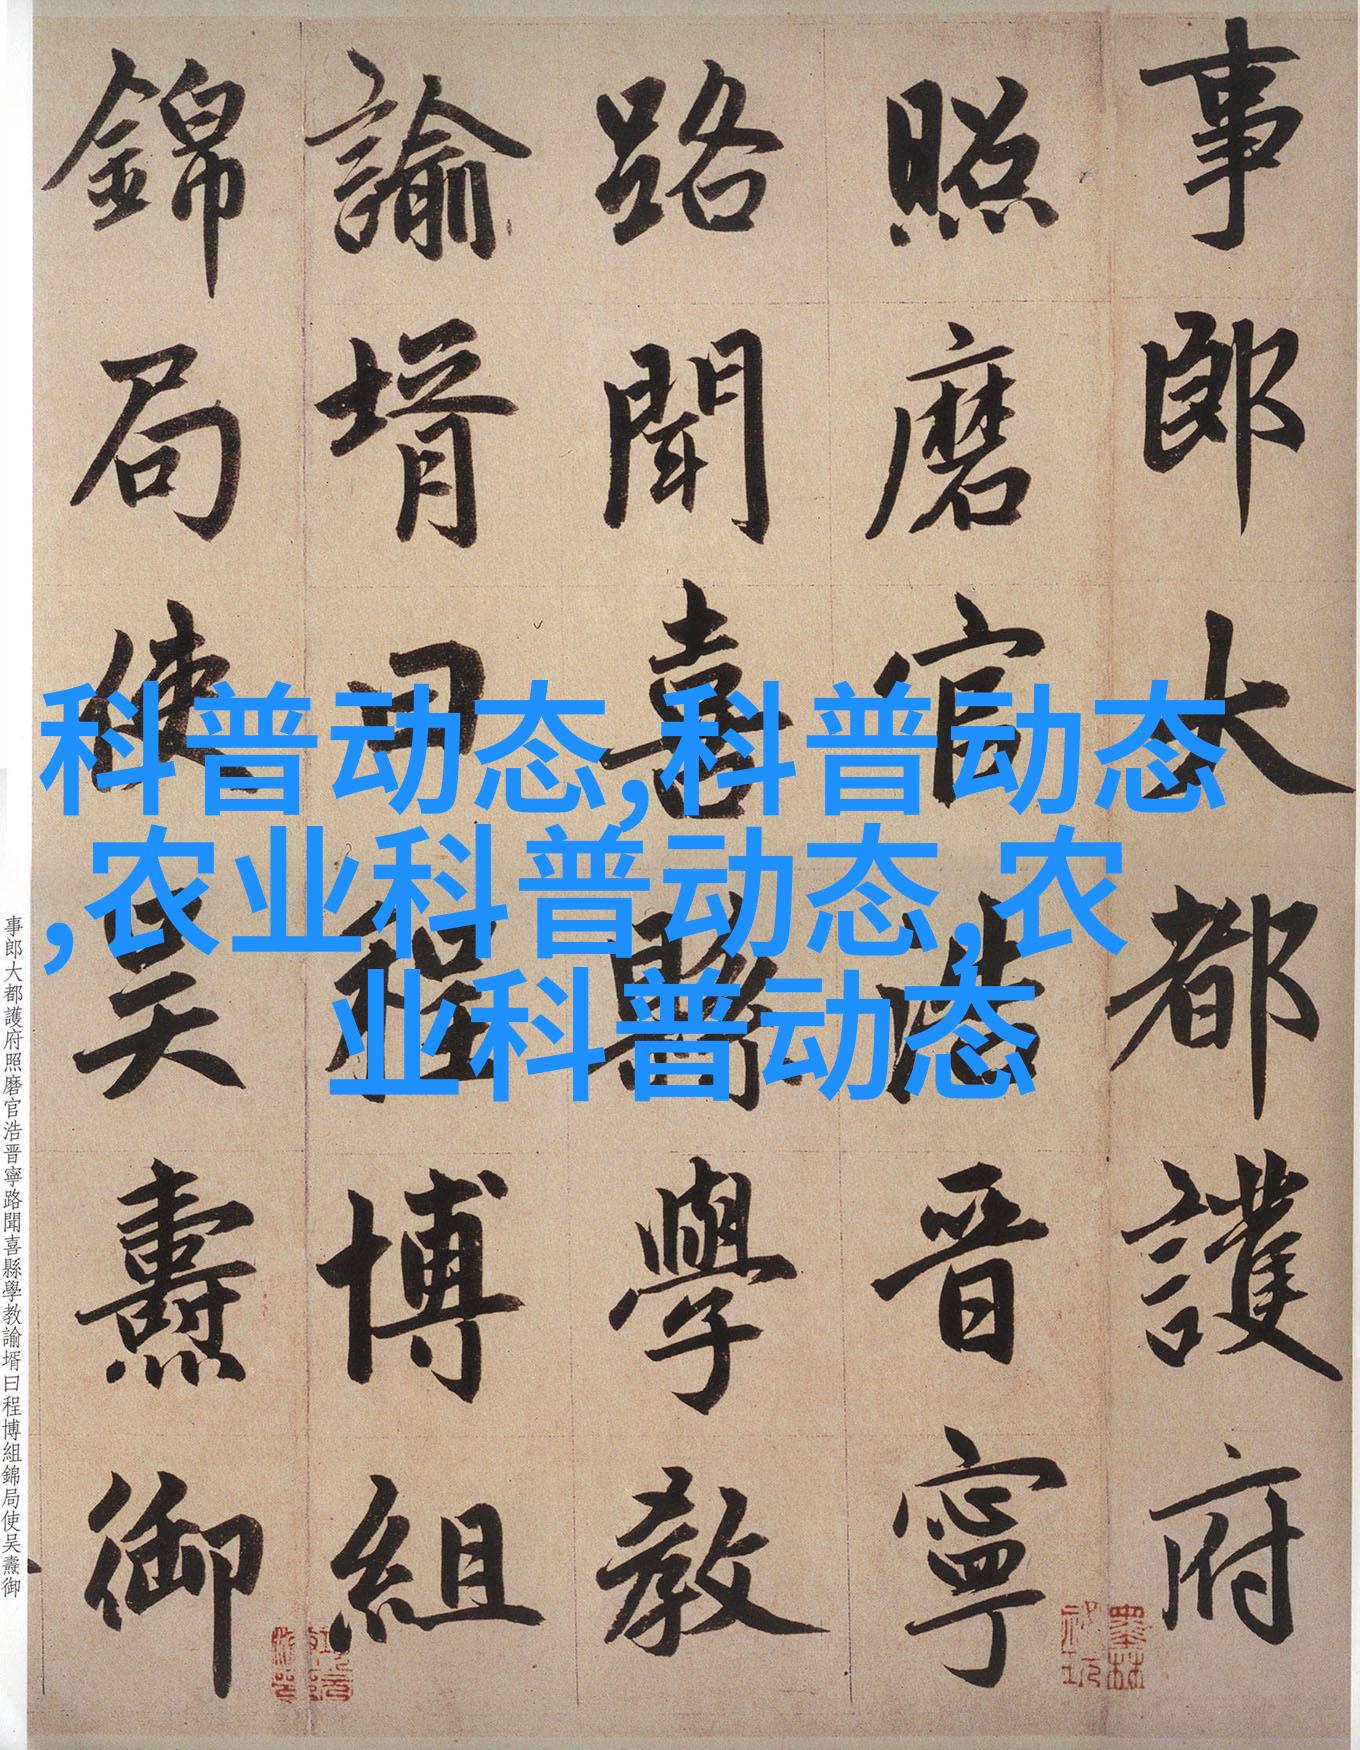 事郎大都護府
照磨官浩晋寧
路聞喜縣學教
諭壻曰程博組
錦局使吴燾御
科普动态,科普动态
,农业科普动态,农
业科普动态
事郎大都護府照磨官浩晋寧路聞喜縣學教諭壻曰程博組錦局使吴燾御